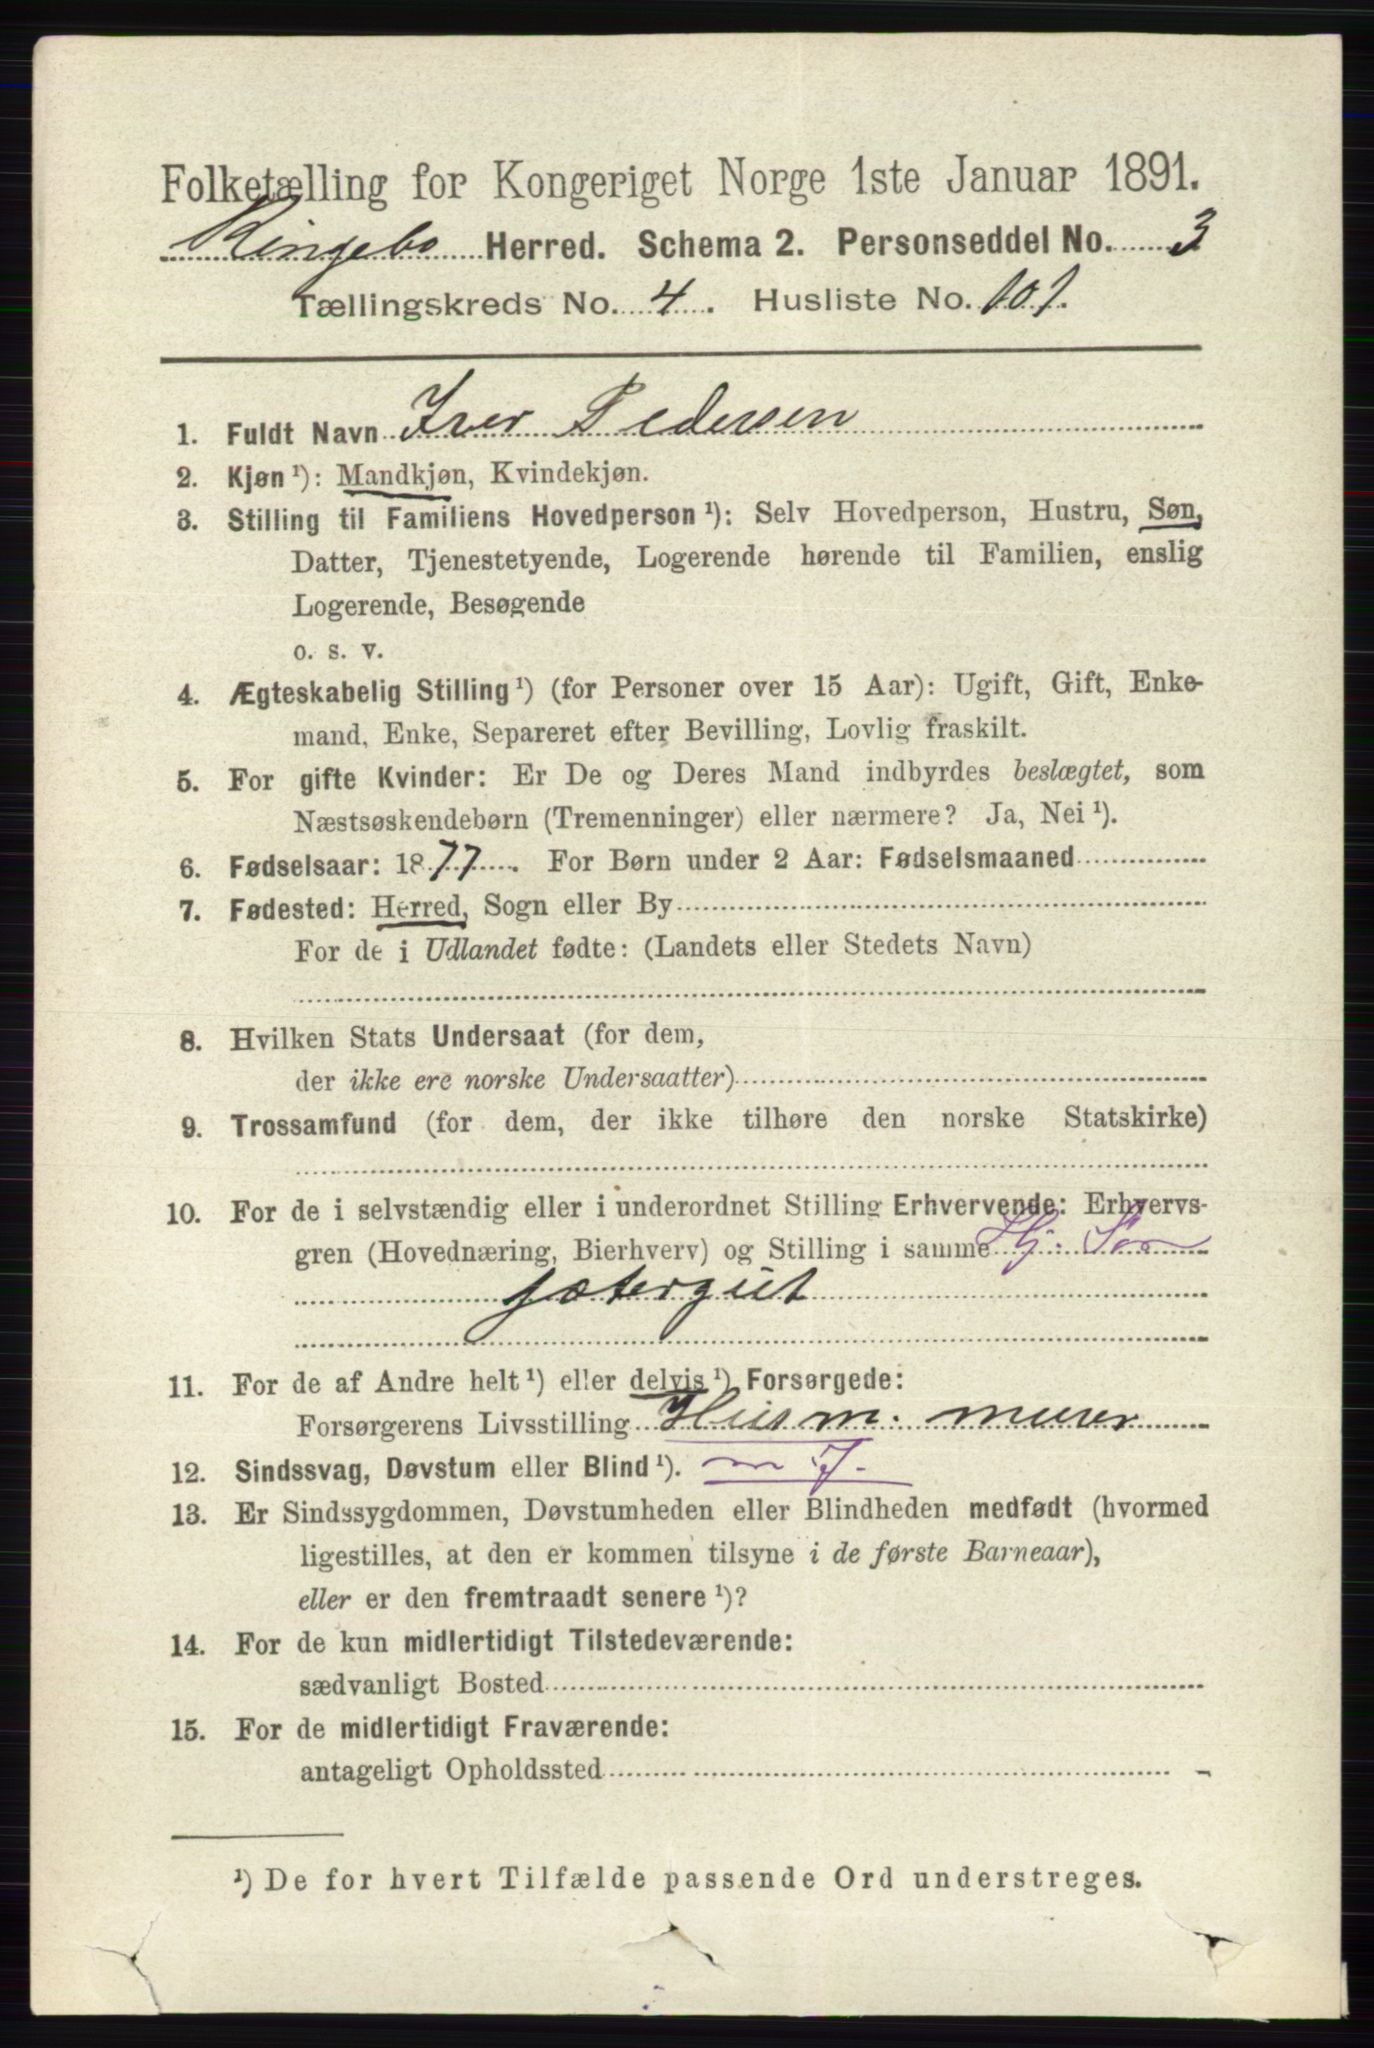 Folketælling for Kongeriget Norge 1ste Januar 1891.
Ringebo Herred. Schema 2. Personseddel No. 3
Tællingskreds No. 4. Husliste No. 101.
1. Fuldt Navn Iver Pedersen
2. Kjøn ¹): Mandkjøn, Kvindekjøn.
3. Stilling til Familiens Hovedperson ¹): Selv Hovedperson, Hustru, Søn,
Datter, Tjenestetyende, Logerende hørende til Familien, enslig
Logerende, Besøgende
o. s. v.
4. Ægteskabelig Stilling ¹) (for Personer over 15 Aar): Ugift, Gift, Enke-
mand, Enke, Separeret efter Bevilling, Lovlig fraskilt.
5. For gifte Kvinder: Er De og Deres Mand indbyrdes beslægtet, som
Næstsøskendebørn (Tremenninger) eller nærmere? Ja, Nei ¹).
6. Fødselsaar: 1877. For Børn under 2 Aar: Fødselsmaaned
7. Fødested: Herred, Sogn eller By
For de i Udlandet fødte: (Landets eller Stedets Navn)
8. Hvilken Stats Undersaat (for dem,
der ikke ere norske Undersaatter)
9. Trossamfund (for dem, der ikke tilhøre den norske Statskirke)
10. For de i selvstændig eller i underordnet Stilling Erhvervende: Erhvervs-
gren (Hovednæring, Bierhverv) og Stilling i samme Hj. Søn
jætergut
11. For de af Andre helt ¹) eller delvis ¹) Forsørgede:
Forsørgerens Livsstilling Husm. murer
12. Sindssvag, Døvstum eller Blind ¹).
13. Er Sindssygdommen, Døvstumheden eller Blindheden medfødt (hvormed
ligestilles, at den er kommen tilsyne i de første Barneaar),
eller er den fremtraadt senere ¹)?
14. For de kun midlertidigt Tilstedeværende:
sædvanligt Bosted
15. For de midlertidigt Fraværende:
antageligt Opholdssted
¹) De for hvert Tilfælde passende Ord understreges.